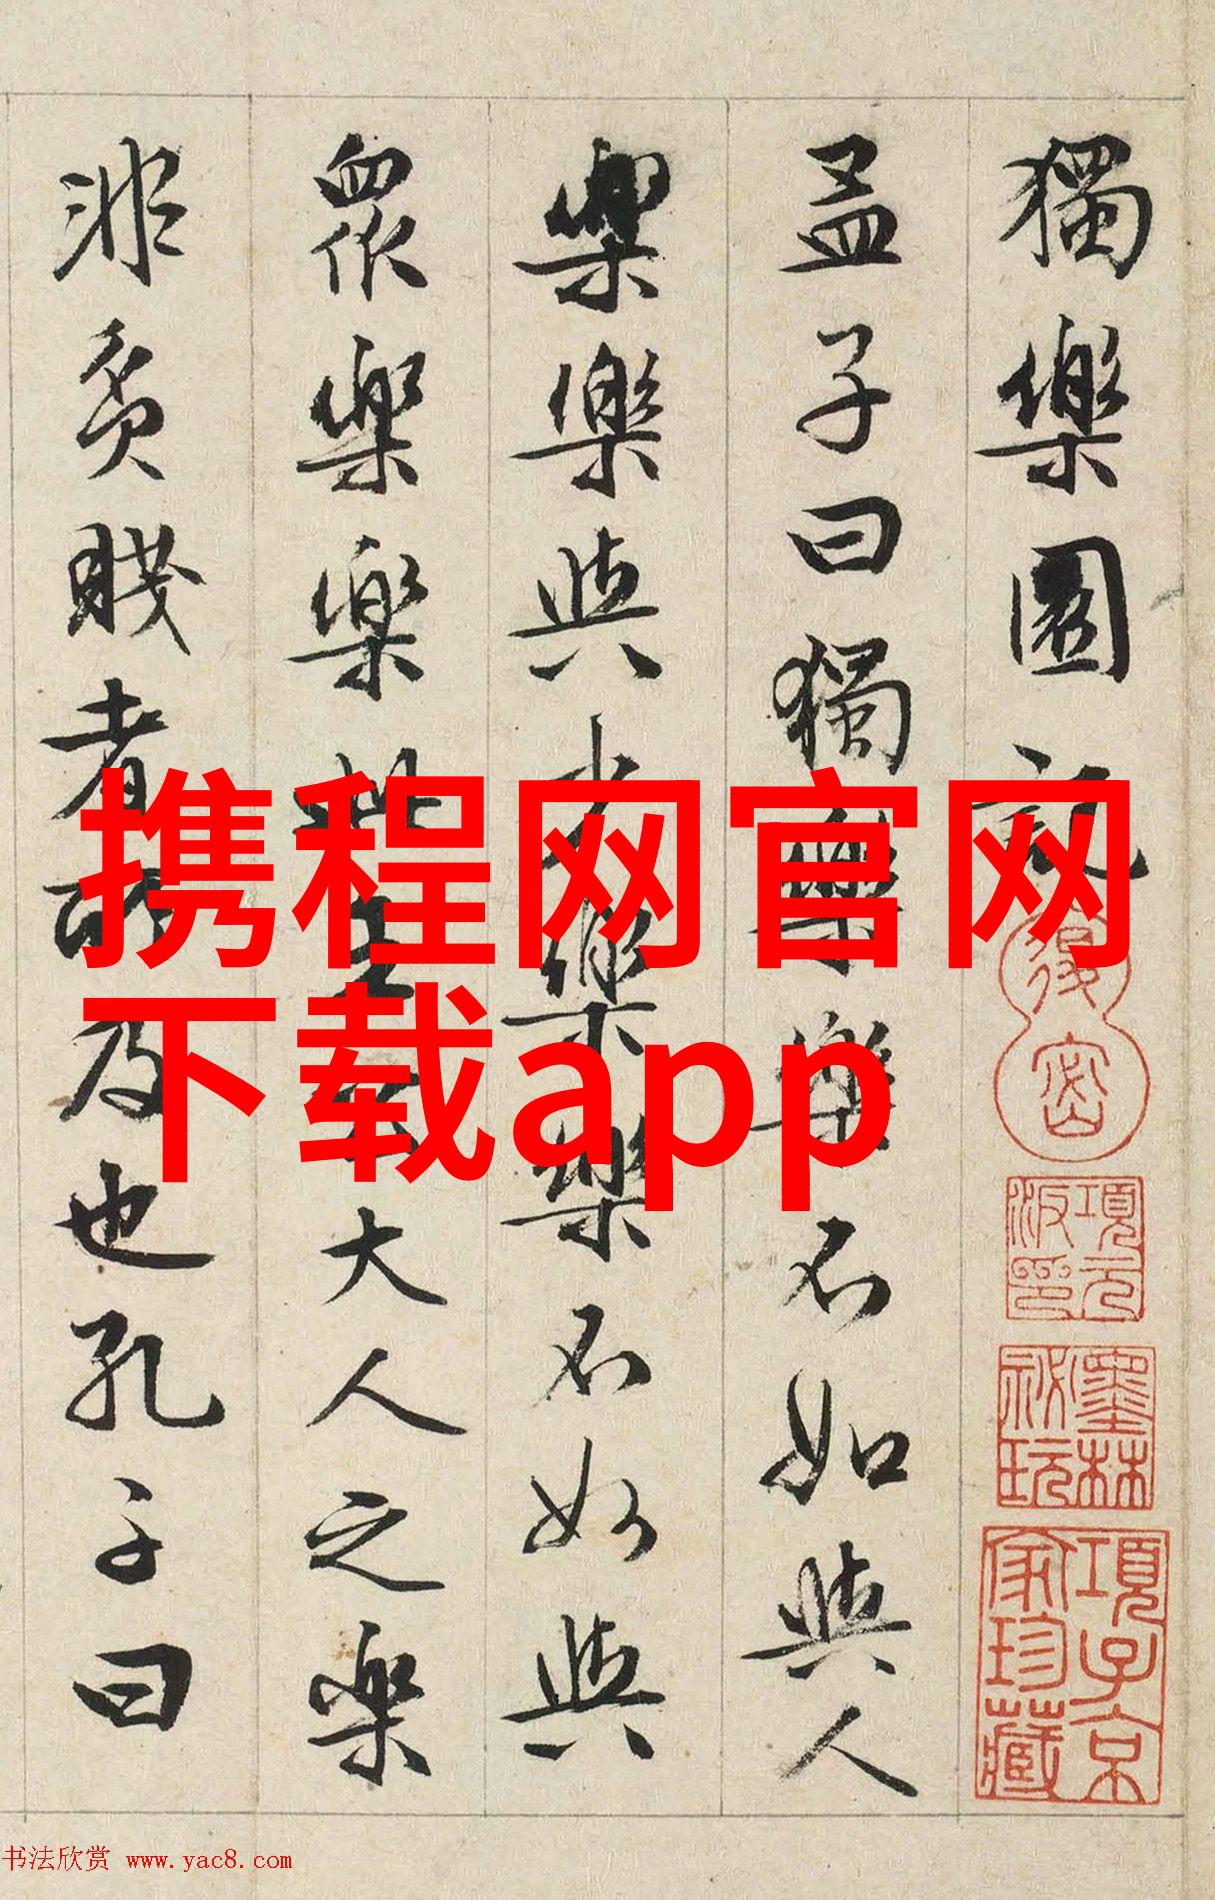 獨樂園記
孟子曰獨樂樂不如與人
樂樂與少樂樂不如與
眾樂樂此王公大人之樂
非貧賤者所及也孔子曰
項元汴印
墨林祕玩
項子京家珍藏
携程网官网
下载app
书法欣赏 www.yac8.com